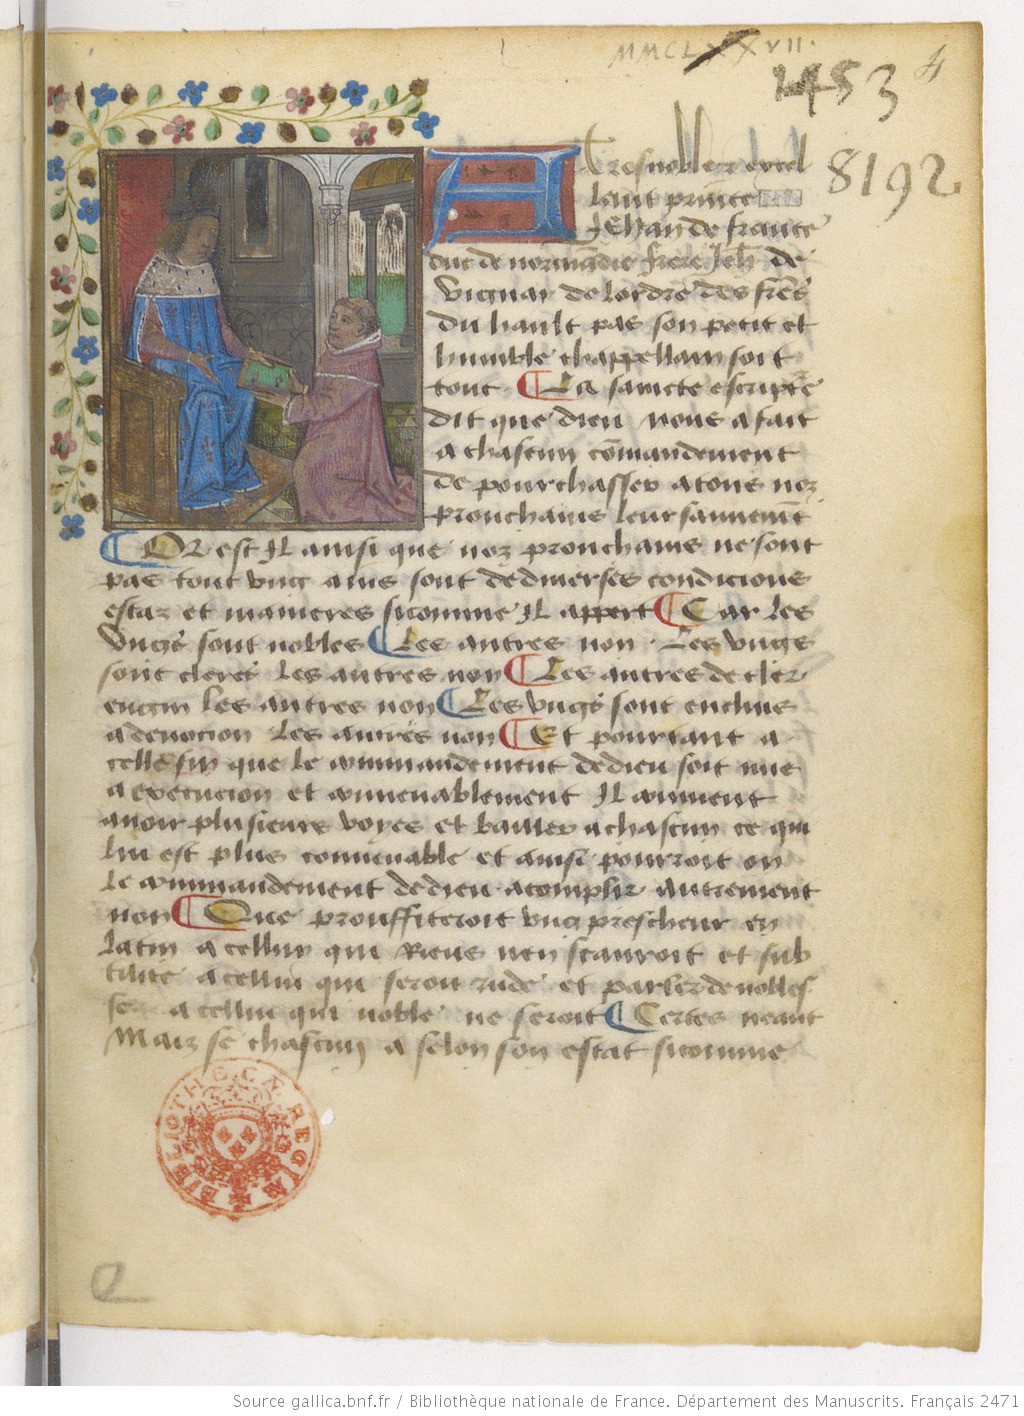 MMCLXXVII.
1453
4
8192
A tresnoble et excel
lant prince
Jehan de france
duc de normādie frere Jeh̄ de
vignay de lordre des freres
du hault pas son petit et
humble chappellain soit
tout La saincte escripte
dit que dieu nous a fait
a chascun cōmandement
de pourchasser a tous noz
prouchains leur sauuemēt
Or est Il ainsi que noz prouchains ne sont
pas tout vng ains sont de diuerses condicions
estaz et manieres sicomme Il appert Car les
vngs sont nobles Les autres non. Les vngs
sont clercs les autres non Les autres de cler
engin les autres non Les vngs sont enclins
a deuocion les autres non Et pourtant a
celle fin que le commandement de dieu soit mis
a execucion et conuenablement Il conuient
auoir plusieurs voyes et bailler a chascun ce qui
lui est plus conuenable et ainsi pourroit on
le commandement de dieu acomplir autrement
non Que prouffiteroit vng prescheur en
latin a cellui qui Riens nen scauroit et sub
tilite a cellui qui seroit rude et parler de nobles
se a cellui qui noble ne seroit Certes neant
Maiz se chascun a selon son estat sicomme
BIBLIOTHECÆ REGIÆ
Source gallica.bnf.fr / Bibliothèque nationale de France. Département des Manuscrits. Français 2471